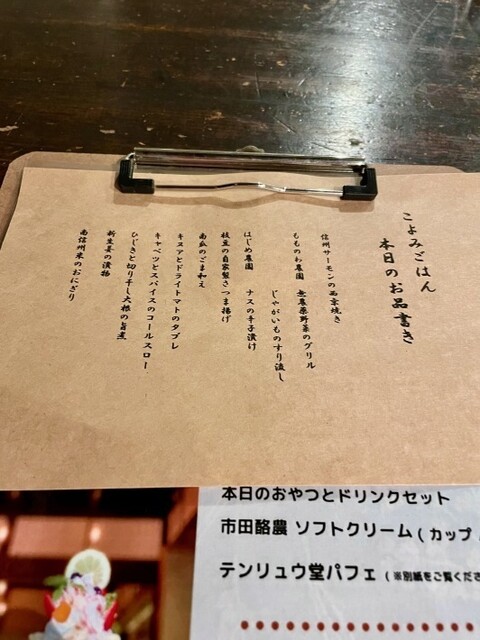 こよみごはん
本日のお品書き
信州サーモンの西京焼き
もものわ農園　無農薬野菜のグリル
じゃがいものすり流し
はじめ農園　ナスの辛子漬け
枝豆の自家製さつま揚げ
南瓜のごま和え
キヌアとドライトマトのタブレ
キャベツとスパイスのコールスロー
ひじきと切り干し大根の旨煮
新生姜の漬物
南信州米のおにぎり
本日のおやつとドリンクセット
市田酪農 ソフトクリーム ( カップ
テンリュウ堂パフェ ( ※別紙をご覧くださ